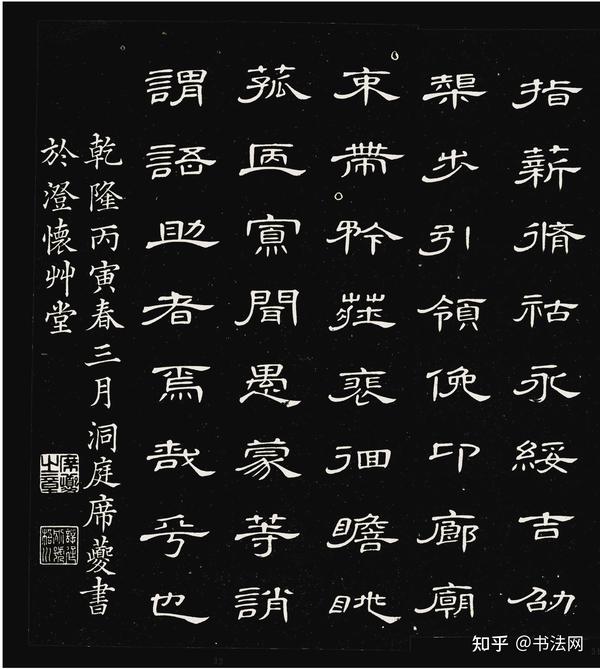 指薪脩祜永綏吉劭
榘步引領俛卬廊廟
束帶矜莊裵徊瞻眺
菰㔷寡聞愚蒙等誚
謂語助者焉哉乎也
乾隆丙寅春三月洞庭席夔書
於澄懷艸堂
席夔之章
知乎 @书法网